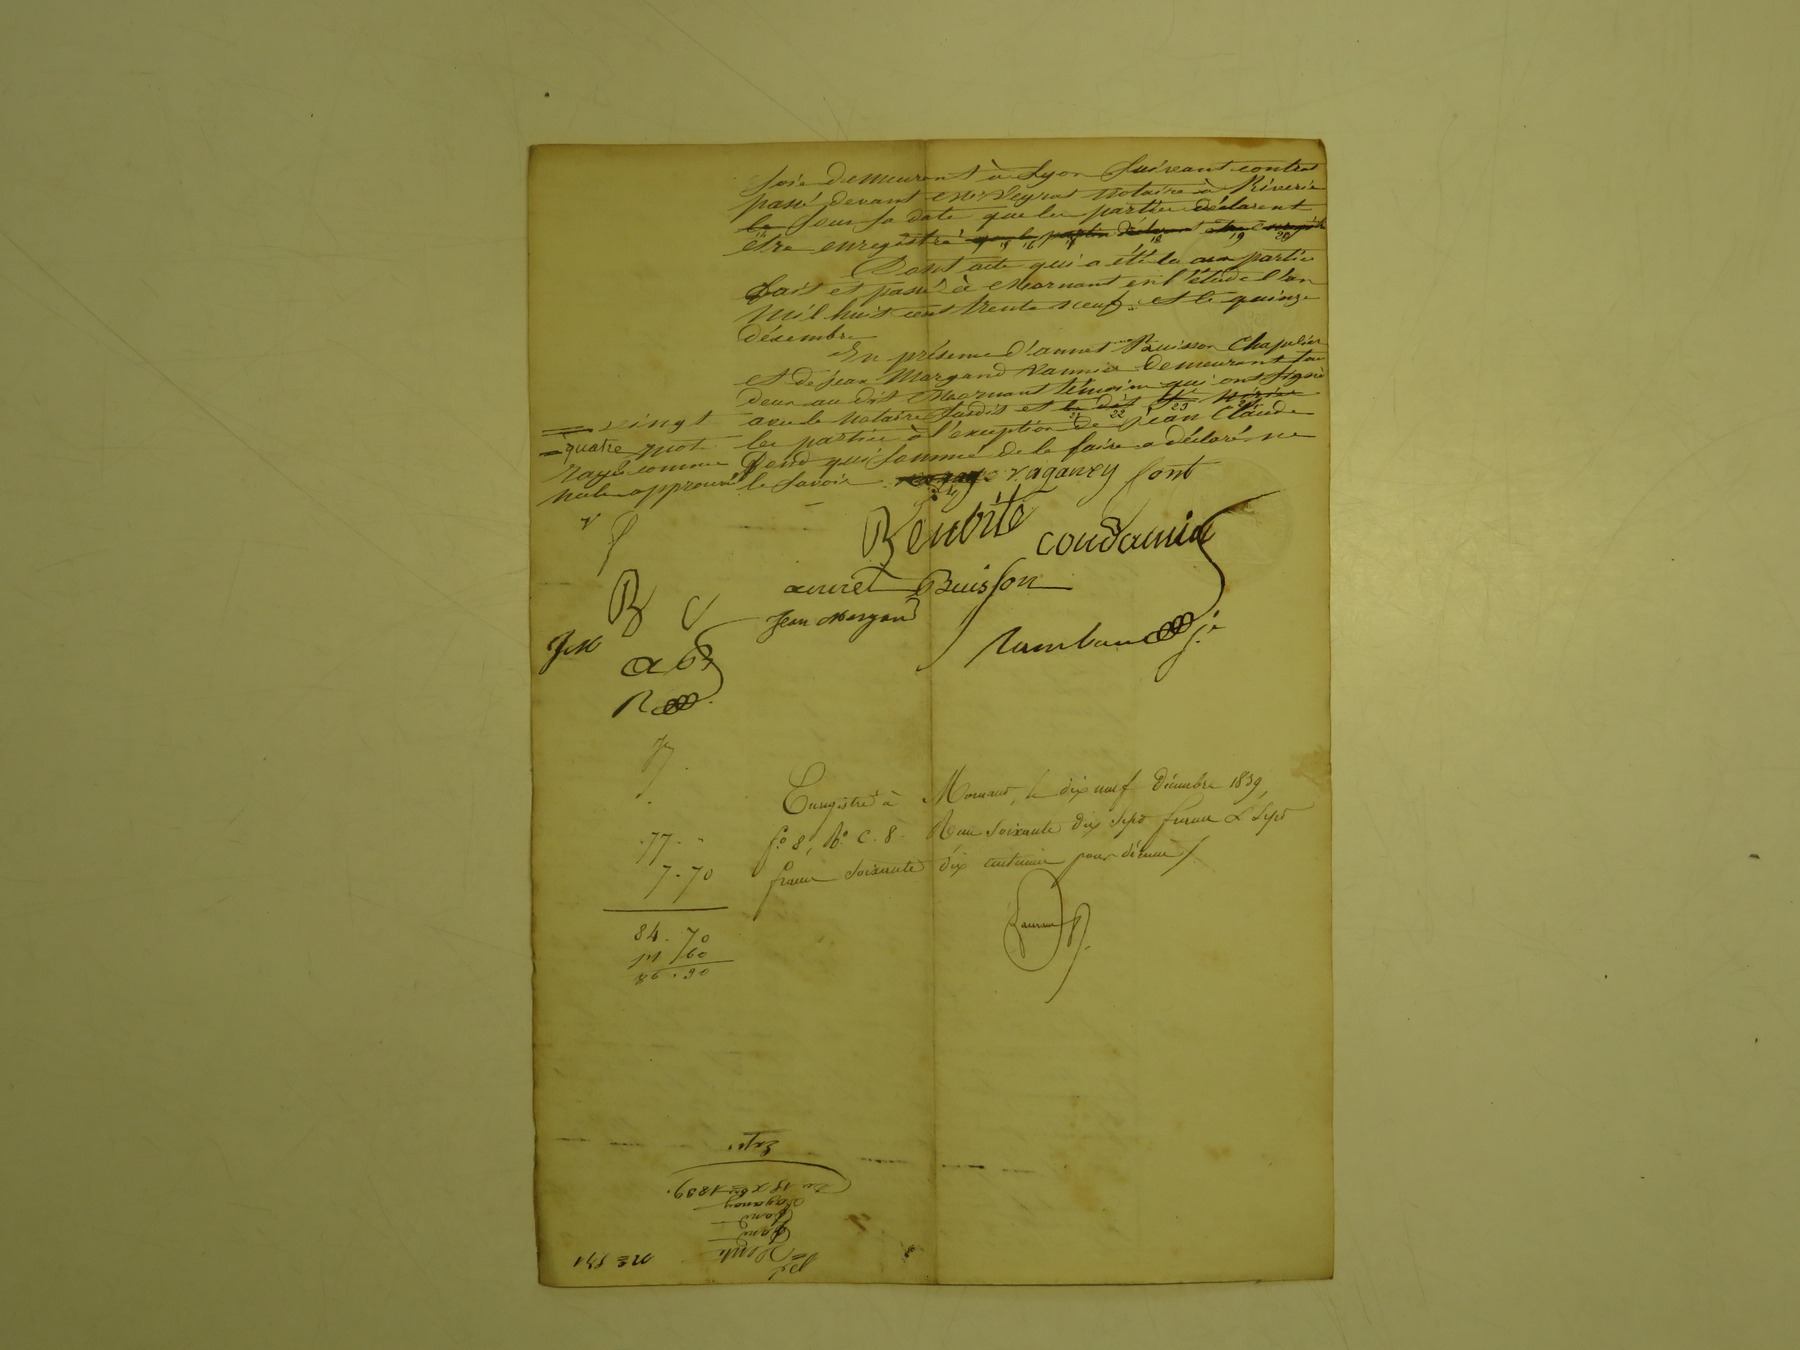 soie demeurant à Lyon suivant contrat
passé devant Me Veyrat notaire à Riverie
le sous sa date que les parties déclarent
être enregistré que les parties déclarent être enregistré
15 16 17 18 19 20
Dont acte qui a été lu aux parties
fait et passé à Mornant en l'étude l'an
mil huit cent trente neuf et le quinze
décembre
En présence d'annet Buisson Chapelier
et de Jean Margand Vannier demeurant tous
deux au dit Mornant témoins qui ont signé
avec le notaire susdit et
21 22 23
les parties à l'exception de Jean Claude
Pond qui sommé de le faire a déclaré ne
le savoir
vingt
quatre mots
rayés comme
nuls approuvé
vaganey font
Benoite condamin
annet Buisson
Jean Margand
B C
J M
a B
R
Enregistré à Mornant, le dix neuf Décembre 1839,
fo 8, Ro C. 8. Reçu soixante dix sept francs & sept
francs soixante dix centimes pour décime
77 "
7.70
84.70
86.90
Expé
Du 15 Xbre 1839.
Vaganay
Vente